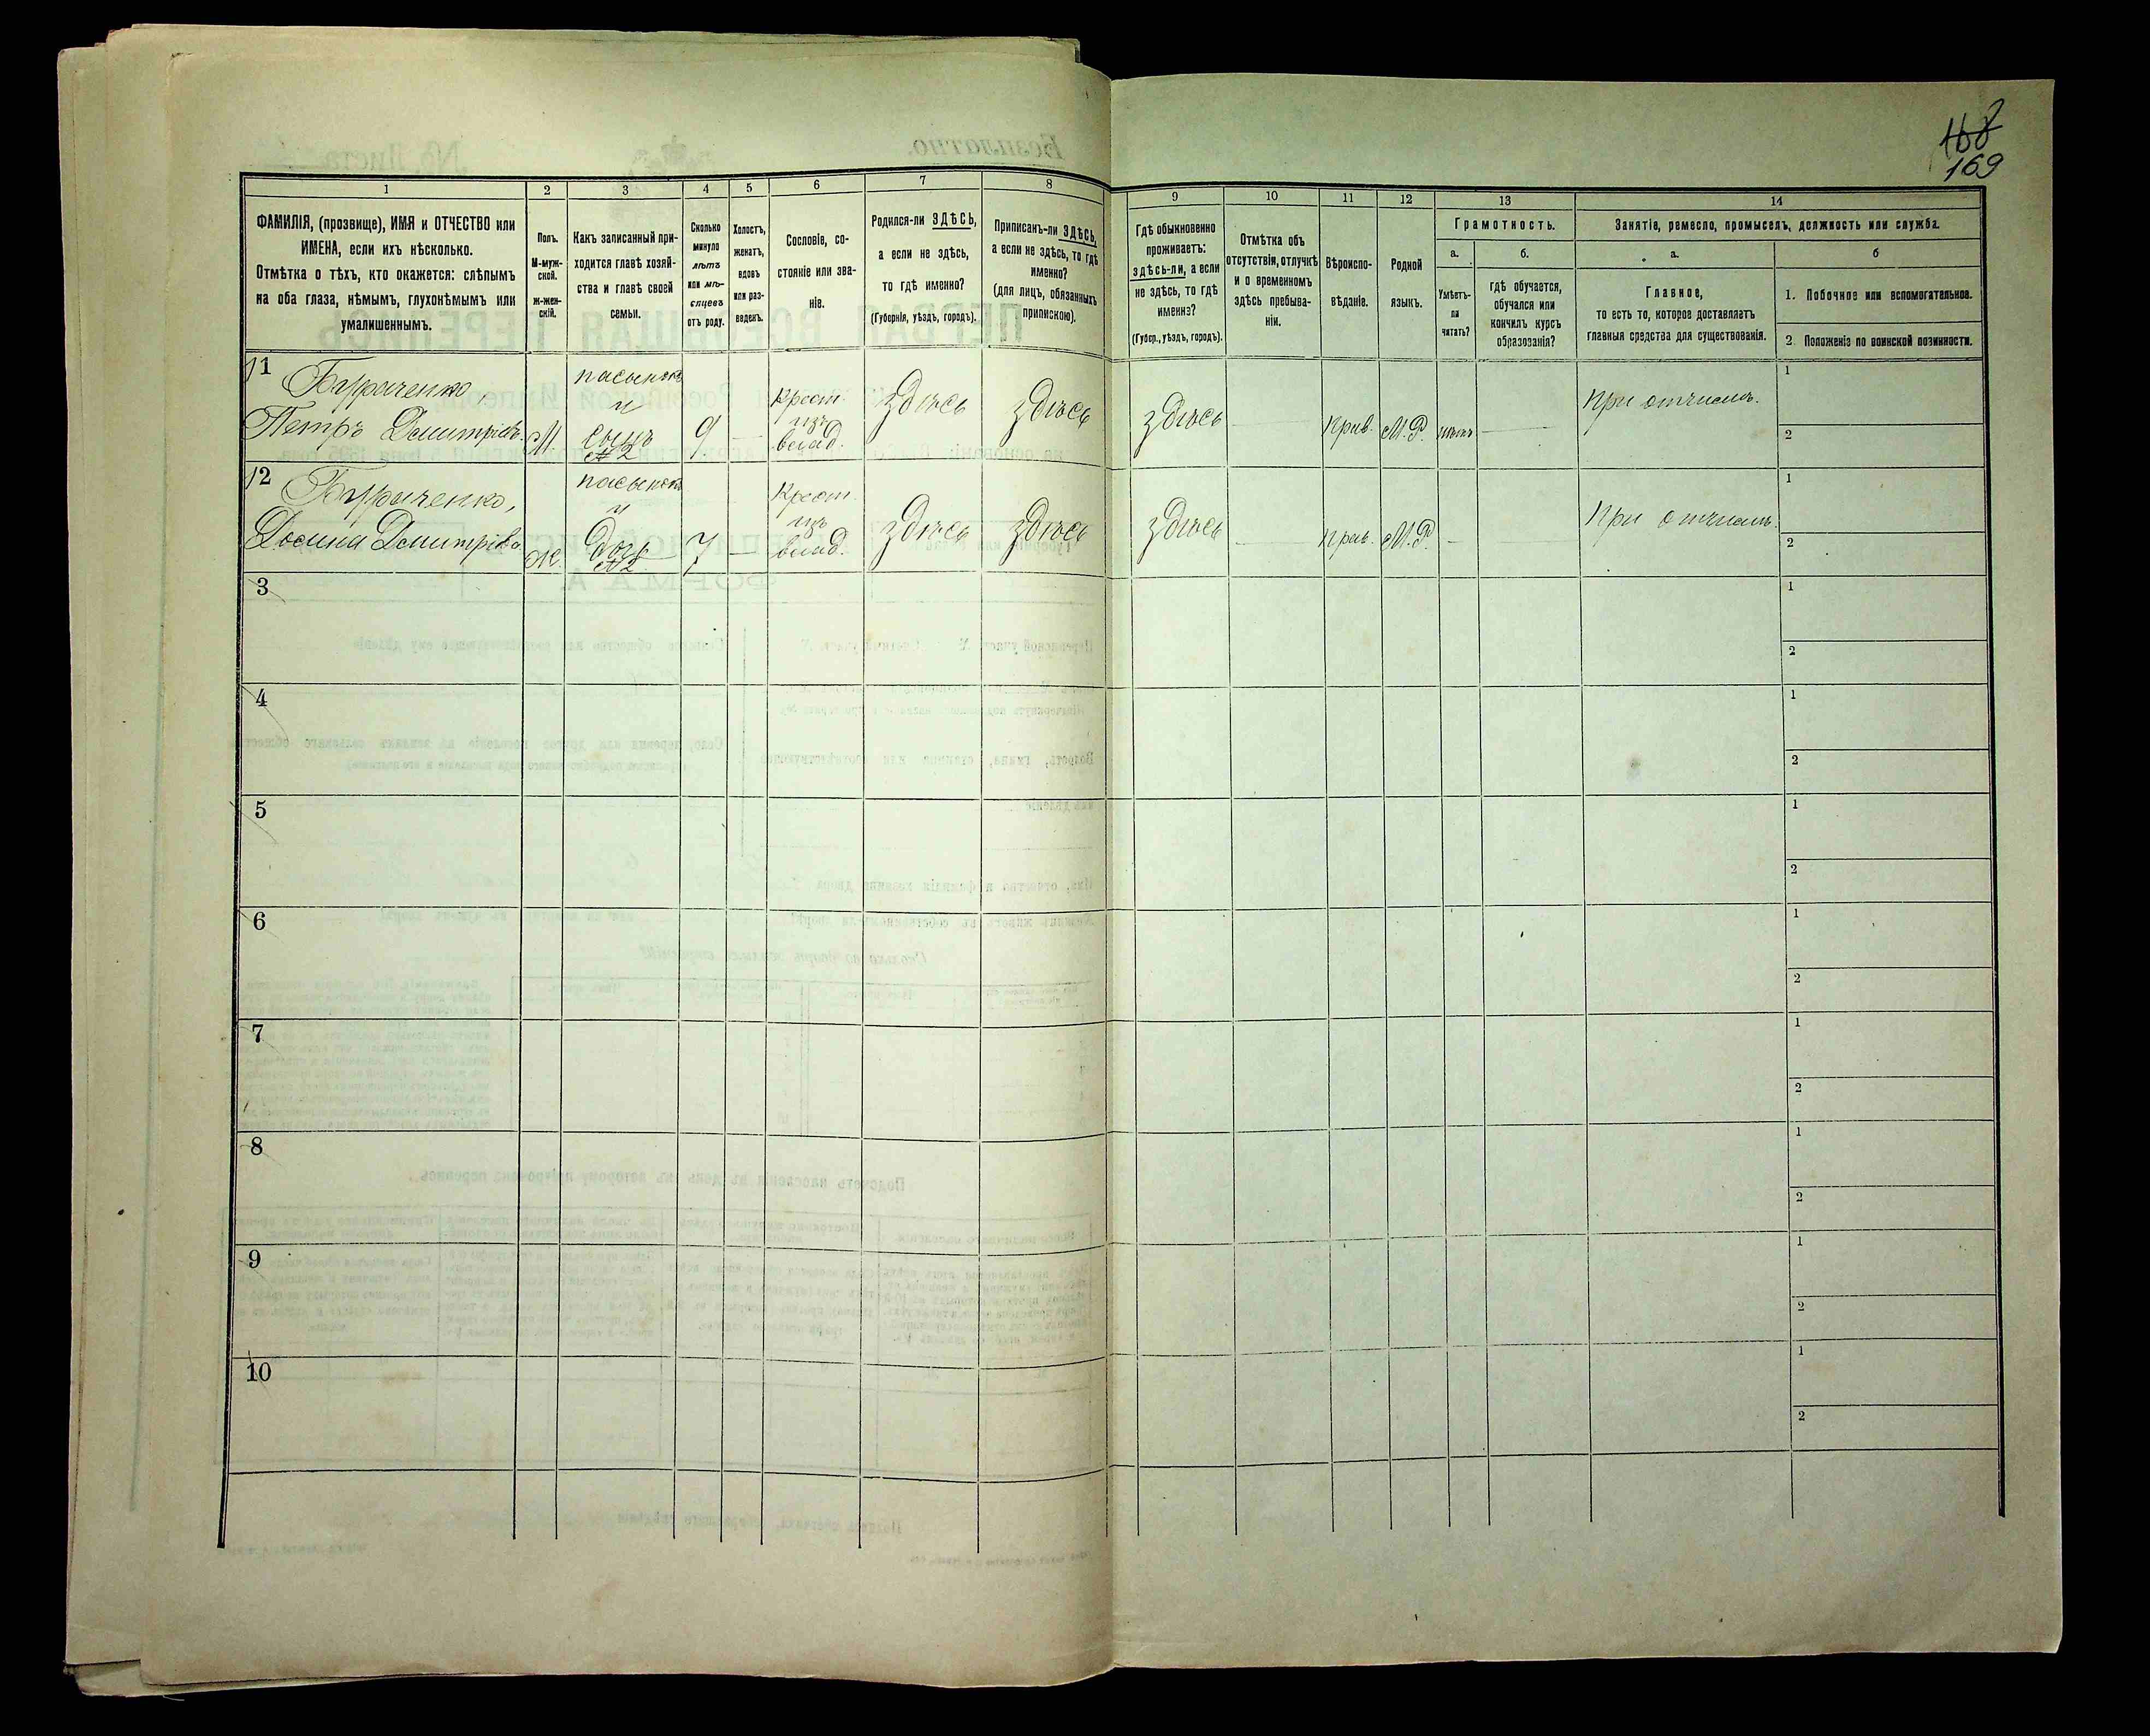 168
169
1
2
3
4
5
6
7
8
9
10
11
12
13
14
ФАМИЛІЯ, (прозвище), ИМЯ и ОТЧЕСТВО или
ИМЕНА, если ихъ нѣсколько.
Отмѣтка о тѣхъ, кто окажется: слѣпымъ
на оба глаза, нѣмымъ, глухонѣмымъ или
умалишеннымъ.
Полъ.
М-муж-
ской.
Ж-жен-
скій.
Какъ записанный при-
ходится главѣ хозяй-
ства и главѣ своей
семьи.
Сколько
минуло
лѣтъ
или мѣ-
сяцевъ
отъ роду.
Холостъ,
женатъ,
вдовъ
или раз-
веденъ.
Сословіе, со-
стояніе или зва-
ніе.
Родился-ли ЗДѢСЬ,
а если не здѣсь,
то гдѣ именно?
(Губернія, уѣздъ, городъ).
Приписанъ-ли ЗДѢСЬ,
а если не здѣсь, то гдѣ
именно?
(для лицъ, обязанныхъ
припискою).
Гдѣ обыкновенно
проживаетъ:
здѣсь-ли, а если
не здѣсь, то гдѣ
именно?
(Губер., уѣздъ, городъ).
Отмѣтка объ
отсутствіи, отлучкѣ
и о временномъ
здѣсь пребыва-
ніи.
Вѣроиспо-
вѣданіе.
Родной
языкъ.
Грамотность.
а.
Умѣетъ-
ли
читать?
б.
гдѣ обучается,
обучался или
кончилъ курсъ
образованія?
Занятіе, ремесло, промыселъ, должность или служба.
а.
Главное,
то есть то, которое доставляетъ
главныя средства для существованія.
б
1. Побочное или вспомогательное.
2. Положеніе по воинской повинности.
11
Петръ Дмитріевъ
М.
пасынокъ
и
сынъ
№2
9
Крест.
изъ
влад.
здѣсь
здѣсь
здѣсь
Прав.
М.Р.
нѣтъ
При отчимѣ.
1
2
12
Дмитріева
Ж.
и
дочь
№2
7
Крест.
изъ
влад.
здѣсь
здѣсь
здѣсь
Прав.
М.Р.
При отчимѣ.
1
2
3
1
2
4
1
2
5
1
2
6
1
2
7
1
2
8
1
2
9
1
2
10
1
2